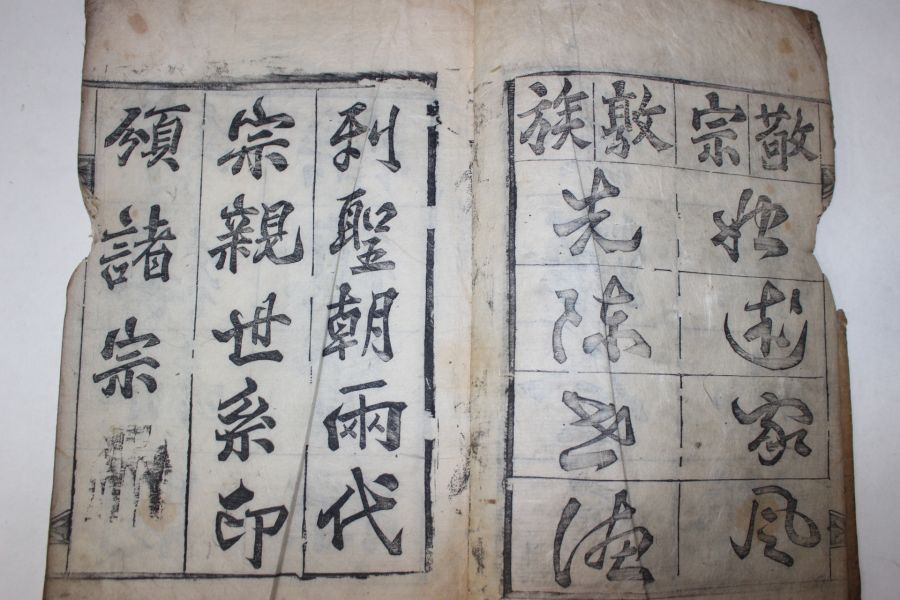 敬宗敦族
始述家風
先陳世德
列聖朝兩代
宗親世系印
頒諸宗